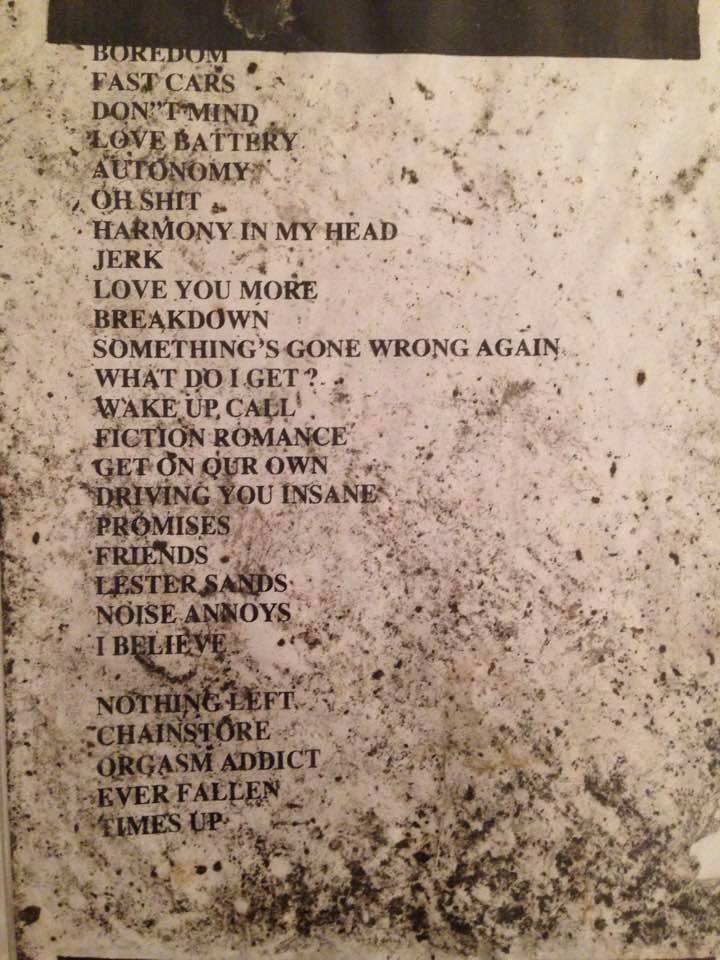 BOREDOM
FAST CARS
DON"T MIND
LOVE BATTERY
AUTONOMY
OH SHIT
HARMONY IN MY HEAD
JERK
LOVE YOU MORE
BREAKDOWN
SOMETHING'S GONE WRONG AGAIN
WHAT DO I GET ?
WAKE UP CALL
FICTION ROMANCE
GET ON OUR OWN
DRIVING YOU INSANE
PROMISES
FRIENDS
LESTER SANDS
NOISE ANNOYS
I BELIEVE
NOTHING LEFT
CHAINSTORE
ORGASM ADDICT
EVER FALLEN
TIMES UP